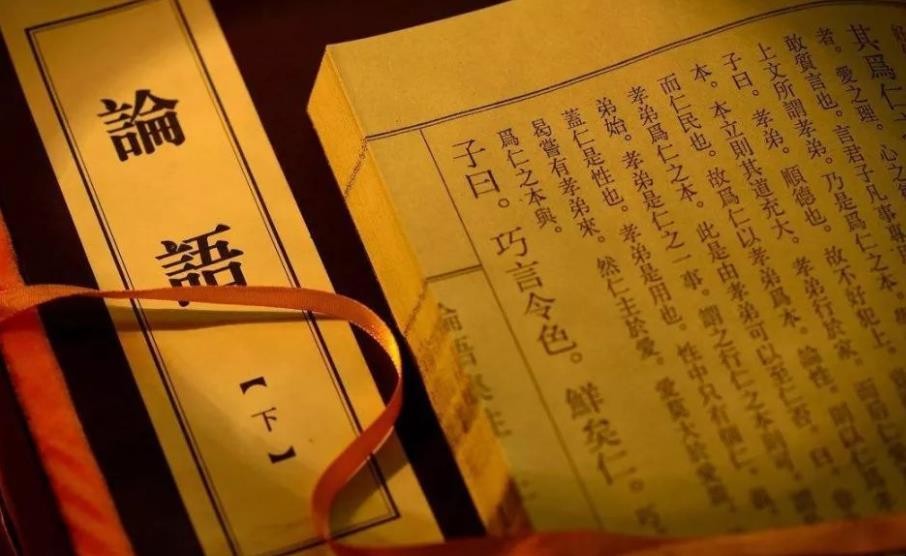 論語
【下】
其爲仁
者。愛之理。心之
敢質言也。言君子凡事
上文所謂孝弟。乃是爲仁之本。
子曰。孝弟。順德也。故不好犯上。
本。本立則其道充大。孝弟行於家。而后仁
而仁民也。故爲仁以孝弟爲本。論性。則以仁爲
孝弟爲仁之本。此是由孝弟可以至仁否。曰。
弟始。孝弟是仁之一事。謂之行仁之本則可。謂
蓋仁是性也。孝弟是用也。性中只有個仁。義
曷嘗有孝弟來。然仁主於愛。愛莫大於愛親。
爲仁之本與。
子曰。巧言令色。鮮矣仁。巧
論語集注